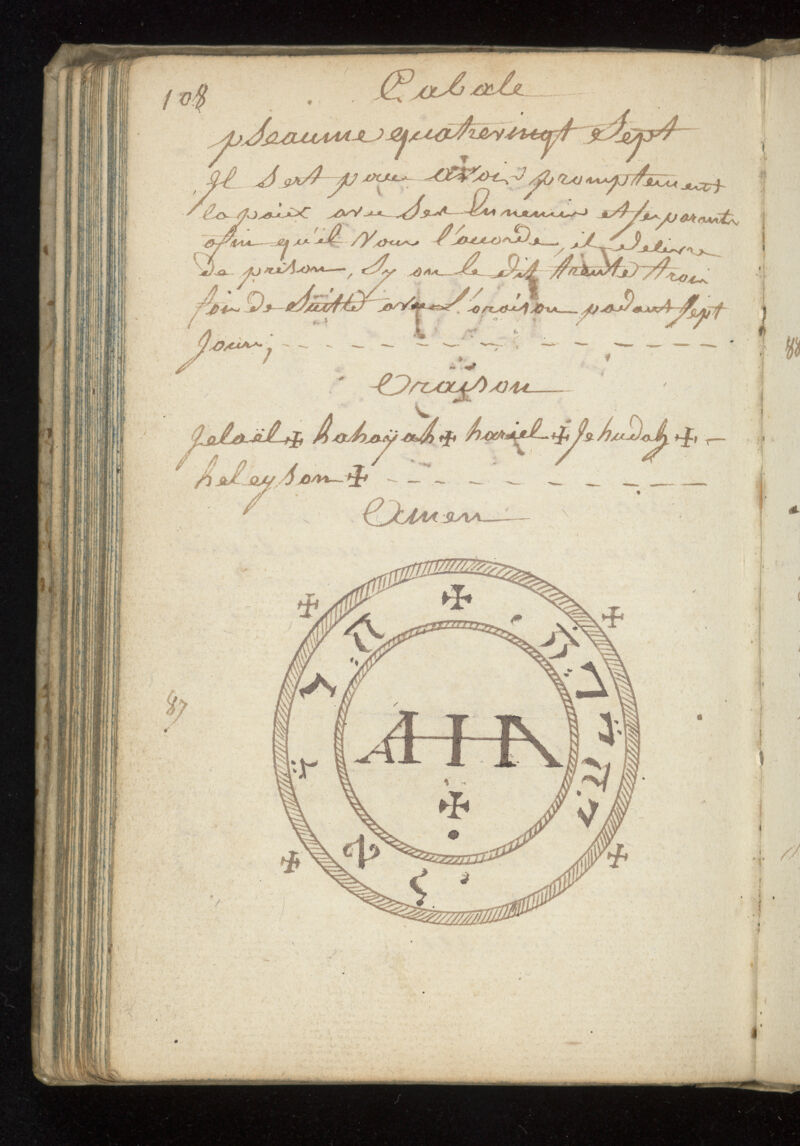 108
Cabale
pseaume quatrevingt Sept
Il Sert pour avoir promptement
la paix avec Ses Ennemis et Ses parants
afin qu'il Vous l'accorde, il delivre
de prison, Sy on le dit trente trois
fois de Suitte avec L'oraison padant Sept
Jours;
Oraison
Jelaël ✠ hahayah ✠ hariel ✠ Jehudah ✠
heleyson ✠
Amen
87
88